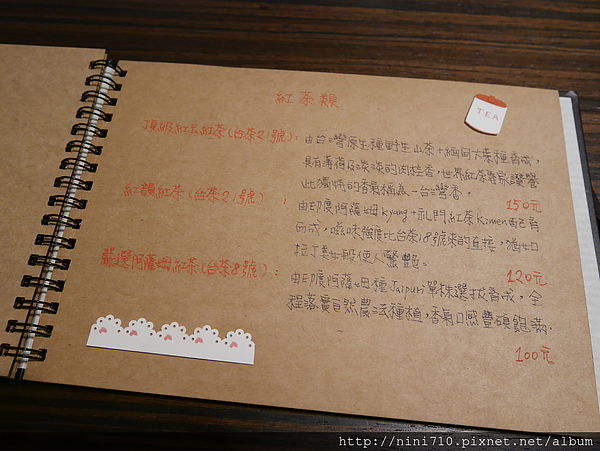 紅茶類
TEA
頂級紅玉紅茶(台茶21號):
由台灣原生種野生山茶+緬甸大葉種育成,
具有薄荷及淡淡的肉桂香,世界紅茶專家讚譽
此獨特的香氣稱為-台灣香。
150元
紅韻紅茶(台茶21號):
由印度阿薩姆Kyang+祁門紅茶Kimen配育
而成,滋味強度比台茶18號來的直接,猶如
拉丁美女般使人驚艷。
120元
嚴選阿薩姆紅茶(台茶8號):
由印度阿薩姆種Jaipuri單株選拔育成,全
程落實自然農法種植,香氣口感豐碩飽滿.
100元
http://nini710.pixnet.net/album